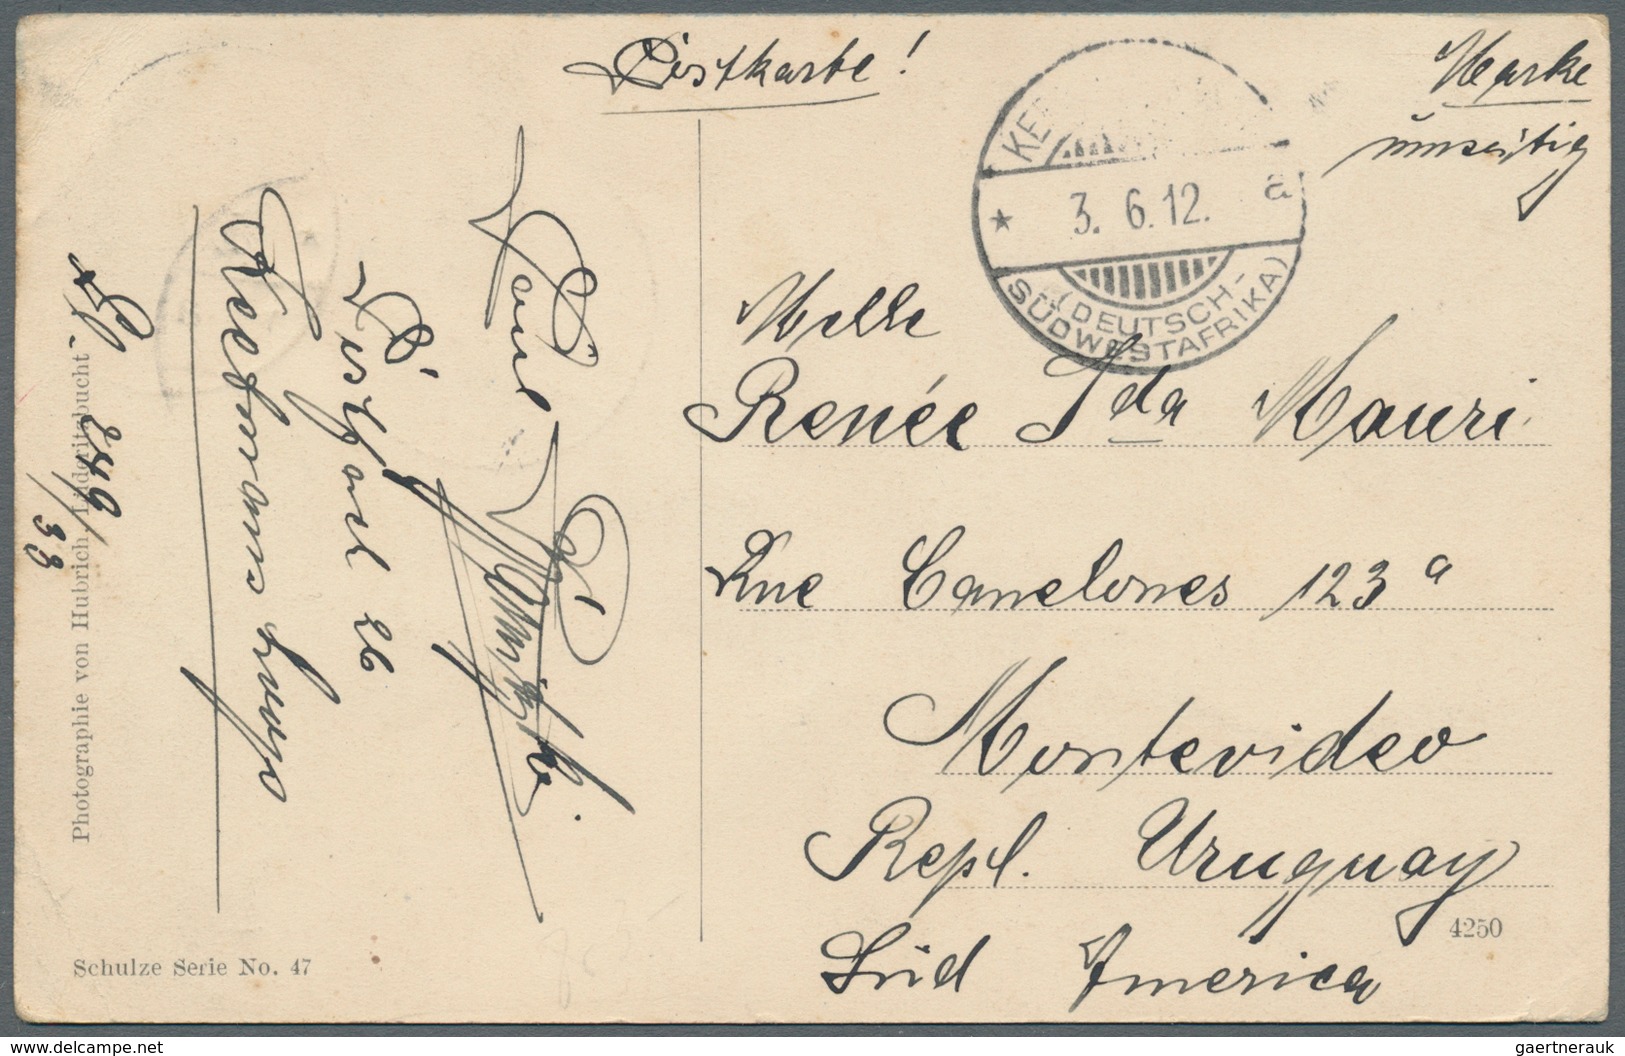 Postkarte!
Marke
umseitig
KEE
3. 6. 12. a
(DEUTSCH-
SÜDWESTAFRIKA)
Melle
Renée Ida Mauri
Rue Canelones 123a
Montevideo
Repl. Uruguay
Süd America
4250
Paul
Postfach 26
Keetmanshoop
249/33
Photographie von Hubrich, Lüderitzbucht
Schulze Serie No. 47
delcampe.net
gaertnerauk